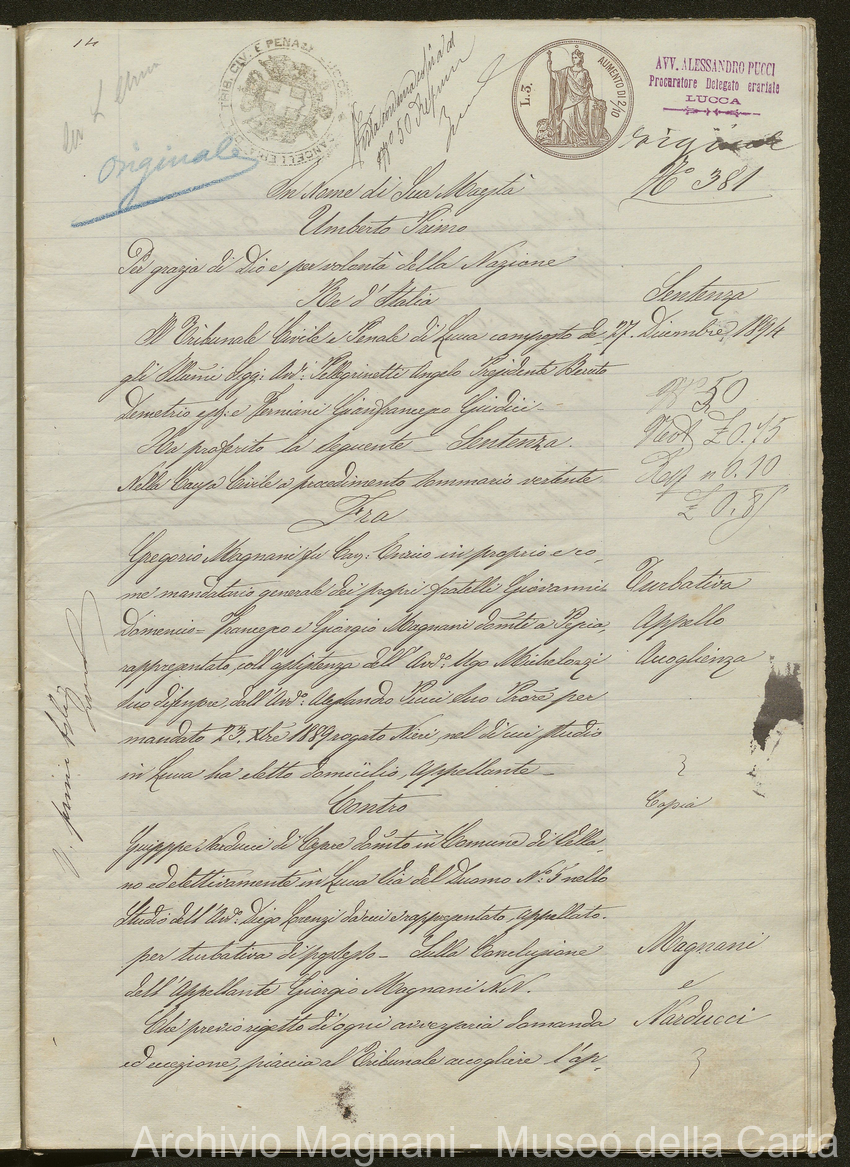 14
originale
TRIB. CIV. E PENALE
CANCELLERIA
L. 3.
AUMENTO DI 2/10
AVV. ALESSANDRO PUCCI
Procuratore Delegato erariale
LUCCA
N° 381
In Nome di Sua Maestà
Umberto Primo
Per grazia di Dio e per volontà della Nazione
Re d'Italia
Sentenza
Il Tribunale Civile e Penale di Lucca composto de 27. Dicembre 1894
gli Illmi Sigg: Avv: Pellegrinetti Angelo Presidente
Demetrio e Gianfrancesco Giudici -
Ha proferito la seguente - Sentenza.
Nella Causa Civile a procedimento sommario vertente
Fra
50
£ 0.75
0.10
£ 0.85
Gregorio Magnani fu Cav: Enrico in proprio e co-
me mandatario generale dei propri fratelli Giovanni
Domenico = Francesco e Giorgio Magnani domti a Pescia,
rappresentato, coll'assistenza dell'Avv° Ugo
suo difensore, dall'Avv°: Alessandro Pucci suo Proc per
mandato 23. Xbre 1889 rogato Nieri, nel di cui studio
in Lucca ha eletto domicilio, Appellante -
Contro
Turbativa
Appello
Accoglienza
Copia
Giuseppe Narducci di Cesare domto in Comune di Vella-
no ed elettivamente in Lucca Via del Duomo N°: 5 nello
Studio dell'Avv°. Diego Lorenzi da cui è rappresentato, Appellato.
per turbativa di possesso - Sulla Conclusione
dell'Appellante Giorgio Magnani N.N.
Che previo rigetto di ogni avversaria domanda
ed eccezione, piaccia al Tribunale accogliere l'ap-
Magnani
e
Narducci
Archivio Magnani - Museo della Carta